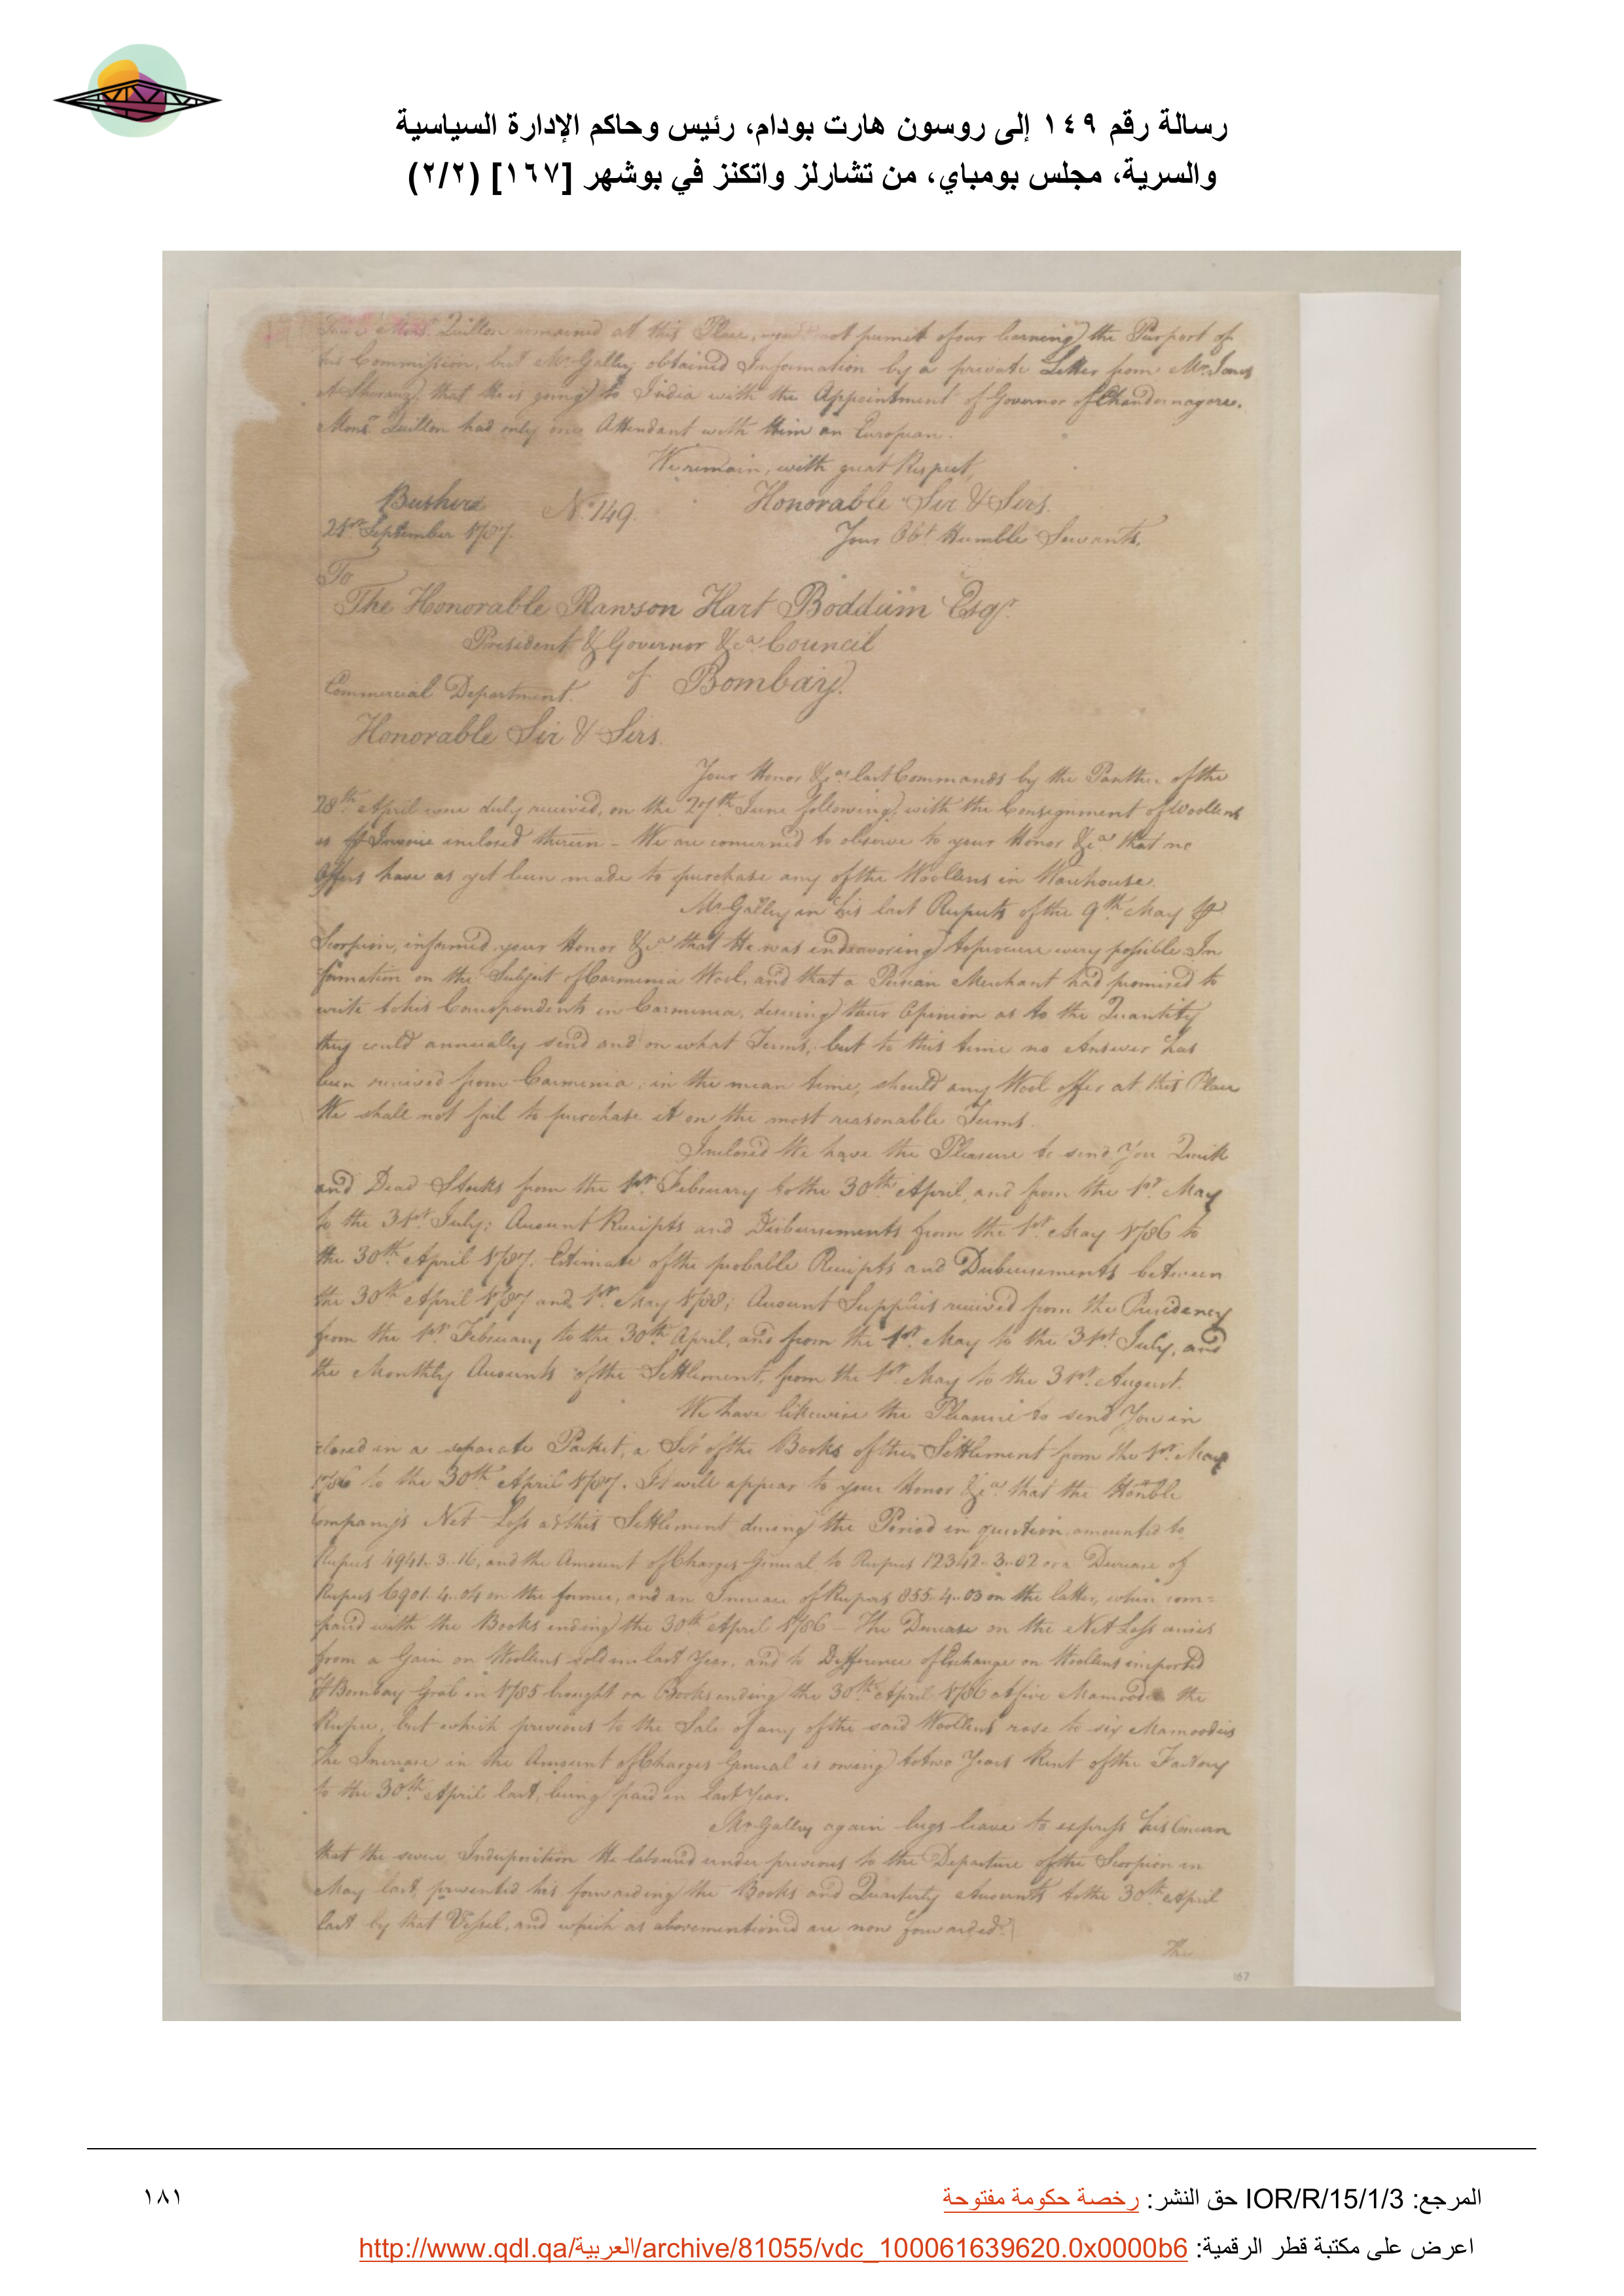 رسالة رقم ١٤٩ إلى روسون هارت بودام، رئيس وحاكم الإدارة السياسية
والسرية، مجلس بومباي، من تشارلز واتكنز في بوشهر [١٦٧] (٢/٢)
Mons.r Quillon remained at this Place, not permit of our learning the Purport of
his Commission, but Mr. Galley obtained Information by a private Letter from Mr. Jones
At Sheraz, that He is going to India with the Appointment of Governor of Chandernagore.
Mons.r Quillon had only one Attendant with Him an European.
We remain, with great Respect,
Bushire No. 149. Honorable Sir & Sirs.
21st September 1787. Your Obt. Humble Servants.
To
The Honorable Rawson Hart Boddam Esqr.
President & Governor &ca. Council
Commercial Department. of Bombay.
Honorable Sir & Sirs.
Your Honor &ca. last Commands by the Panther of the
28th April were duly received, on the 27th June following, with the Consignment of Woollens
as Invoice enclosed therein - We are concerned to observe to your Honor &ca. that no
Offers have as yet been made to purchase any of the Woollens in Warehouse.
Mr. Galley in his last Respects of the 9th May
Scorpion, informed your Honor &ca. that He was endeavoring to procure every possible In
formation on the Subject of Carmenia Wool, and that a Persian Merchant had promised to
write to his Correspondents in Carmenia, desiring their Opinion as to the Quantity
they could annually send and on what Terms, but to this time no Answer has
been received from Carmenia, in the mean time, should any Wool offer at this Place
We shall not fail to purchase it on the most reasonable Terms.
Inclosed We have the Pleasure to send You Quick
and Dead Stocks from the 1st February to the 30th April, and from the 1st May
to the 31st July; Account Receipts and Disbursements from the 1st May 1786 to
the 30th April 1787. Estimate of the probable Receipts and Disbursements between
the 30th April 1787 and 1st May 1788; Account Supplies received from the Presidency
from the 1st February to the 30th April, and from the 1st May to the 31st July, and
the Monthly Accounts of the Settlement, from the 1st May to the 31st August.
We have likewise the Pleasure to send You in
closed in a separate Packet, a Set of the Books of this Settlement from the 1st May
1786 to the 30th April 1787. It will appear to your Honor &ca. that the Honble
Company's Net Loss at this Settlement during the Period in question amounted to
Rupees 4941..3..16, and the Amount of Charges General to Rupees 12342..3..02 or a Decrease of
Rupees 6901..4..04 on the former, and an Increase of Rupees 855..4..03 on the latter, when com=
pared with the Books ending the 30th April 1786 - The Decrease on the Net Loss arises
from a Gain on Woollens sold in last Year, and to Difference of Exchange on Woollens imported
Bombay Grab in 1785 brought on Books ending the 30th April 1786 at five Mamoodies the
Rupee, but which previous to the Sale of any of the said Woollens rose to six Mamoodies
The Increase in the Amount of Charges General is owing to two Years Rent of the Factory
to the 30th April last, being paid in last Year.
Mr. Galley again begs leave to express his Concern
that the severe Indisposition He laboured under previous to the Departure of the Scorpion in
May last, prevented his forwarding the Books and Quarterly Accounts to the 30th April
last by that Vessel, and which as abovementioned are now forwarded.
The
167
المرجع: IOR/R/15/1/3 حق النشر: رخصة حكومة مفتوحة
١٨١
اعرض على مكتبة قطر الرقمية: http://www.qdl.qa/العربية/archive/81055/vdc_100061639620.0x0000b6